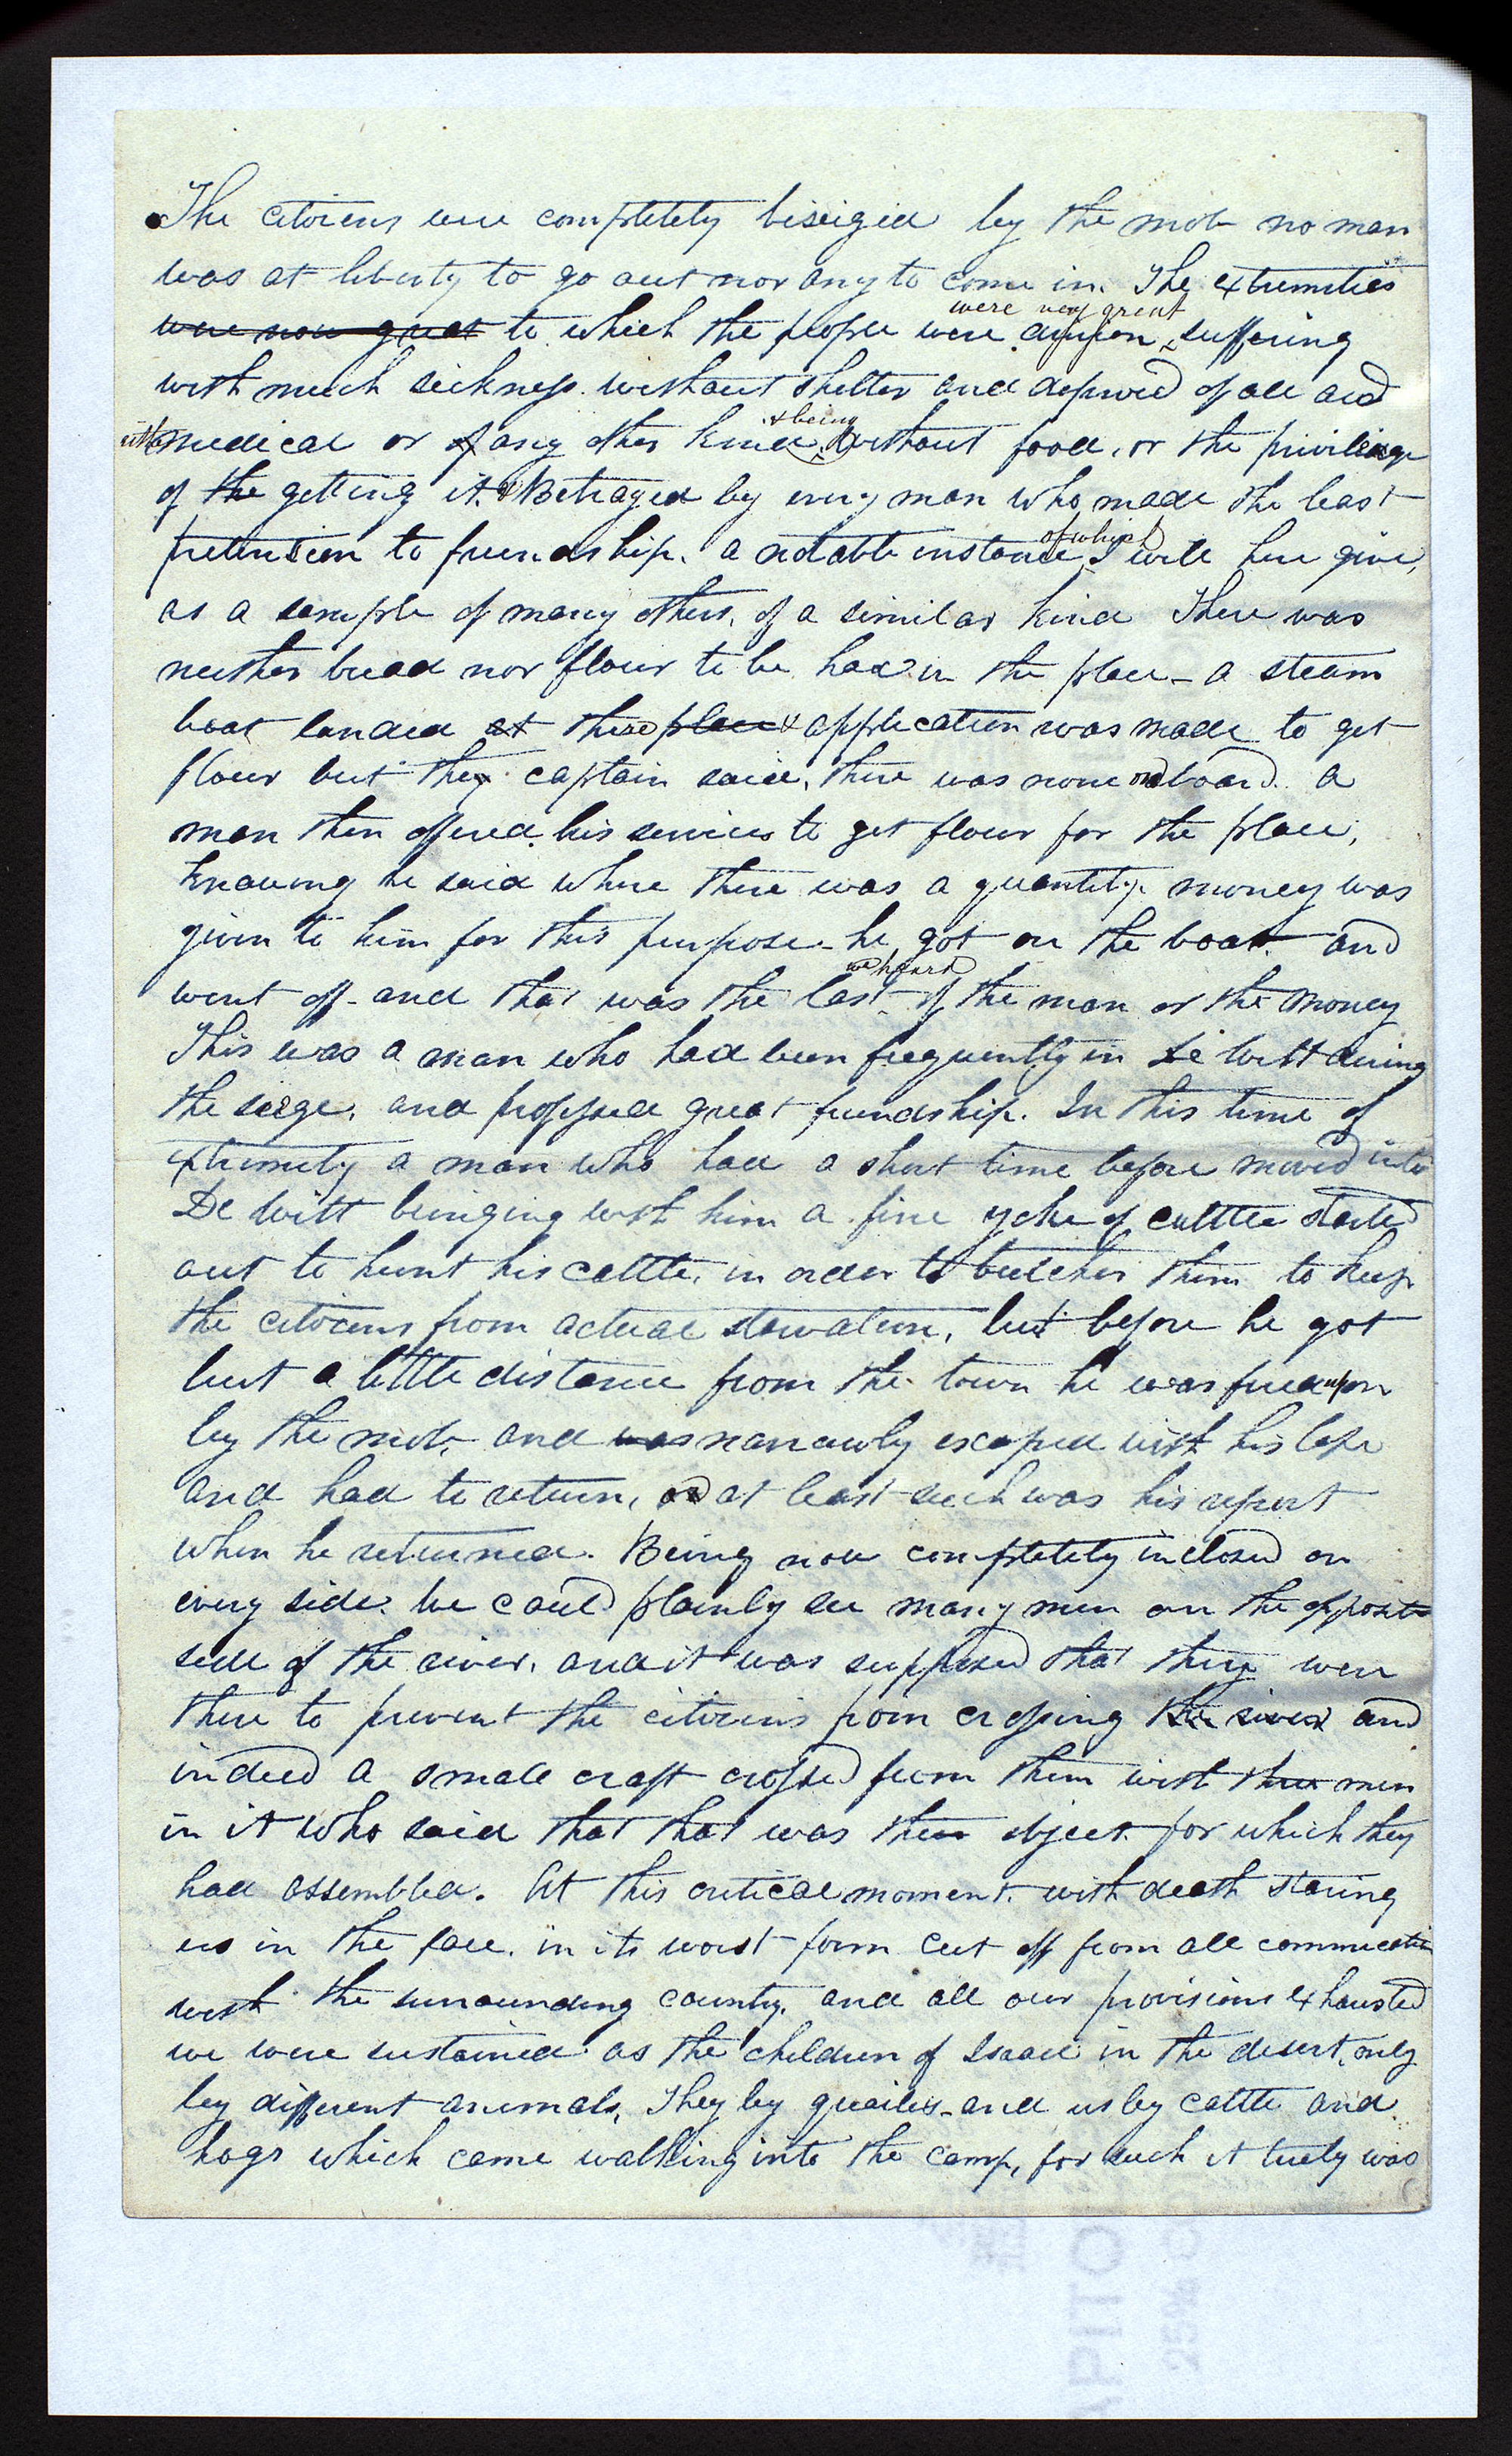 The citizens were completely biseiged by the mob no man
was at liberty to go out nor any to come in. The extremities
were now great to which the people were driven were very great suffering
with much sickness without shelter and deprived of all aid
either medical or of any other kind & being without food, or the privileage
of the getting it. & Betrayed by every man who made the least
pretension to friendship. a notable instance of which I will here give,
as a sample of many others, of a similar kind There was
neither bread nor flour to be had in the place – a steam
boat landed at there place & application was made to get
flour but the captain said, there was none on board. a
man then offered his services to get flour for the place,
Knowing he said where there was a quantity. money was
given to him for this purpose – he got on the boat and
went off – and that was the last we heard of the man or the money
This was a man who had been frequently in De Witt during
the seige, and professed great friendship. In this time of
extremity a man who had a short time before moved into
De Witt bringing with him a fine yoke of cattle started
out to hunt his cattle, in order to butcher them to keep
the citizens from actual starvation, but before he got
but a little distance from the town he was fired upon
by the mob, and was narrowly escaped with his life
and had to return, or at least such was his report
when he returned. Being now completely inclosed on
every side. we could plainly see many men on the opposite
side of the river, and it was supposed that they were
there to prevent the citizens from crossing the river and
indeed a small craft crossed from them with three men
in it who said that that was the object for which they
had assembled. At this critical moment. with death staring
us in the face. in its worst form cut off from all communication
with the surrounding county. and all our provisions exhausted
we were sustained as the children of Israel in the desert, only
by different animals, They by quailes and us by cattle and
hogs which came walking into the camp, for such it truly was